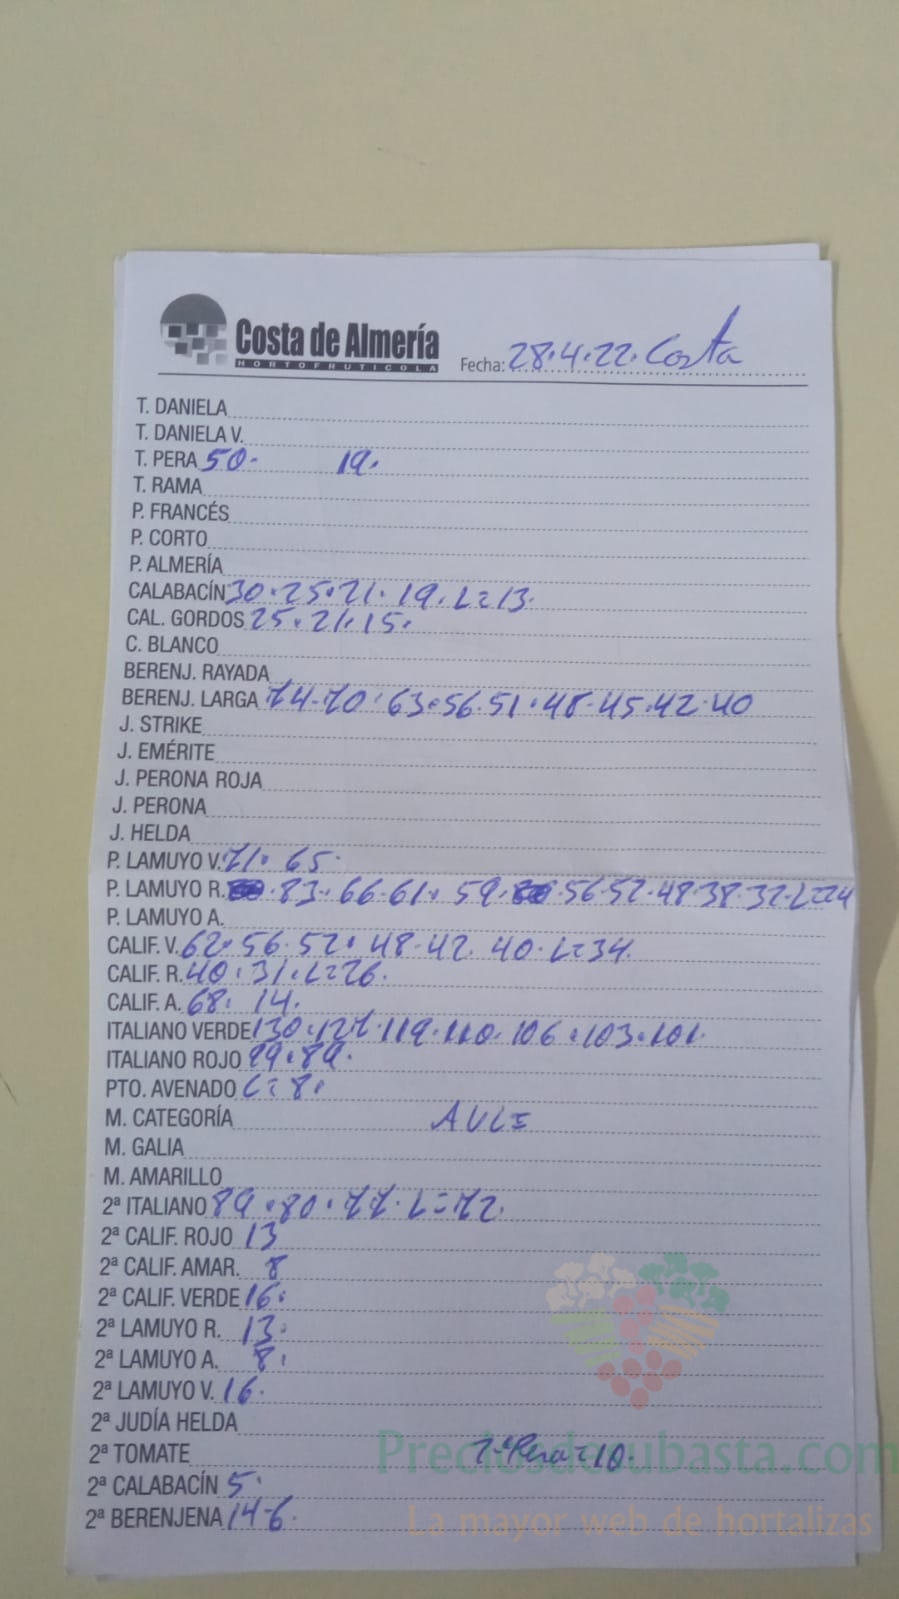 Costa de Almería
HORTOFRUTICOLA
Fecha: 28.4.22. Costa
T. DANIELA
T. DANIELA V.
T. PERA 50. 19.
T. RAMA
P. FRANCÉS
P. CORTO
P. ALMERÍA
CALABACÍN 30.25.21.19.L=13.
CAL. GORDOS 25.21.15.
C. BLANCO
BERENJ. RAYADA
BERENJ. LARGA 74.70.63.56.51.48.45.42.40
J. STRIKE
J. EMÉRITE
J. PERONA ROJA
J. PERONA
J. HELDA
P. LAMUYO V. 71. 65.
P. LAMUYO R. 83.66.61.59. 56.52.48.38.32.L=24
P. LAMUYO A.
CALIF. V. 62.56.52.48.42.40.L=34.
CALIF. R. 40.31.L=26.
CALIF. A. 68. 14.
ITALIANO VERDE 130.127.119.110.106.103.101.
ITALIANO ROJO 99.89.
PTO. AVENADO L=8.
M. CATEGORÍA
M. GALIA
M. AMARILLO
2ª ITALIANO 89.80.77.L=72.
2ª CALIF. ROJO 13
2ª CALIF. AMAR. 8
2ª CALIF. VERDE 16.
2ª LAMUYO R. 13.
2ª LAMUYO A. 8.
2ª LAMUYO V. 16.
2ª JUDÍA HELDA
2ª TOMATE 2ª Pera=10.
Preciosdesubasta.com
2ª CALABACÍN 5.
2ª BERENJENA 14-6.
La mayor web de hortalizas